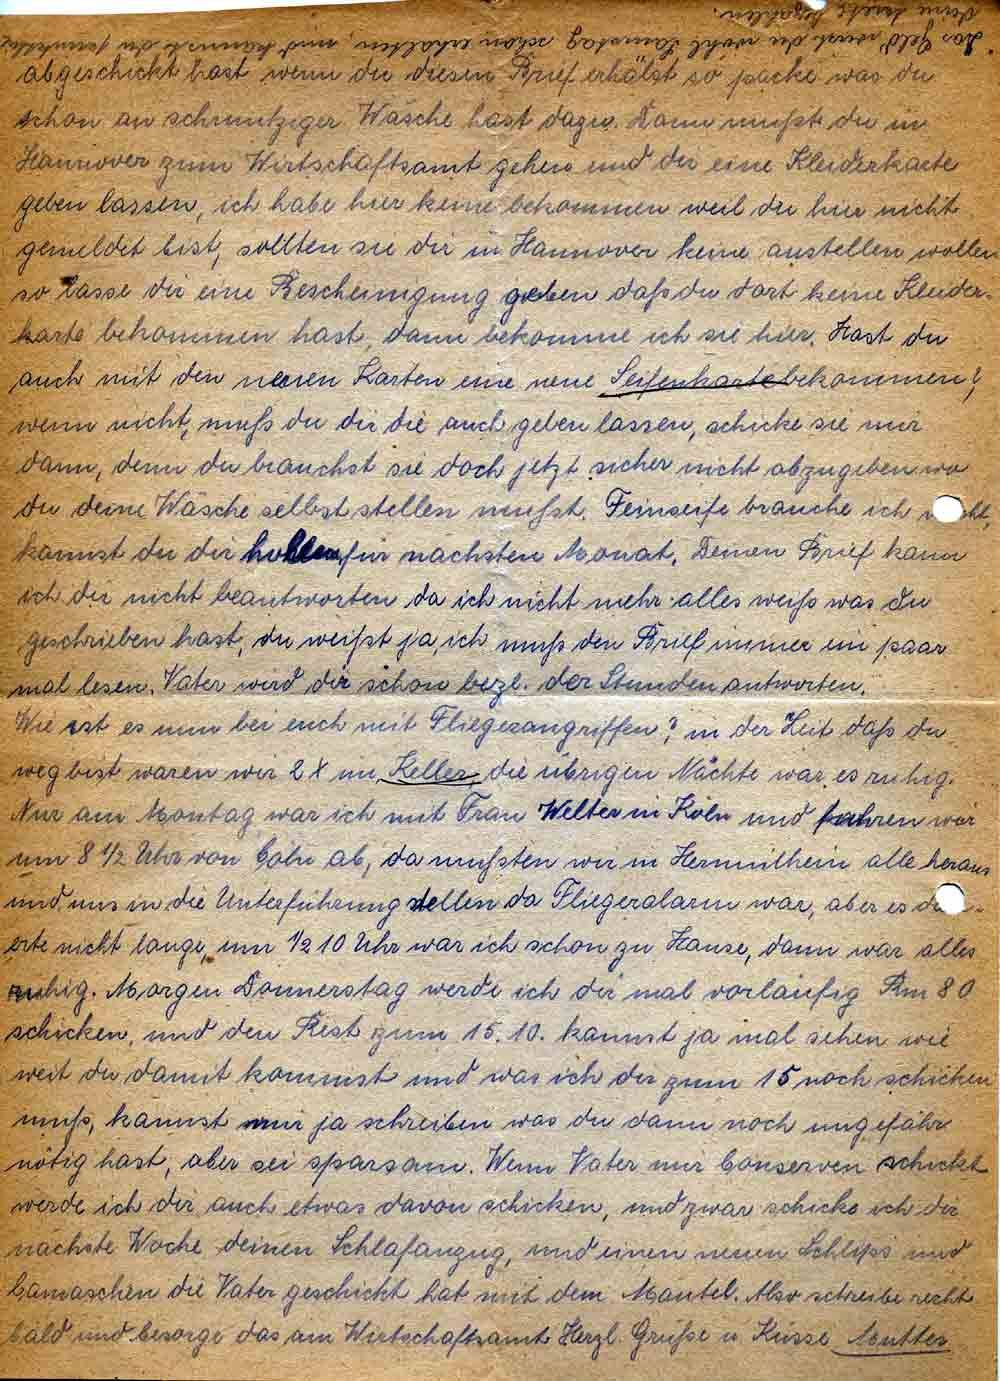 das Geld wirst du wohl Samstag schon erhalten, und kannst du pünktlich
deine bezahlen.
abgeschickt hast wenn du diesen Brief erhälst so packe was du
schon an schmutziger Wäsche hast dazu. Dann mußt du in
Hannover zum Wirtschaftsamt gehen und dir eine Kleiderkarte
geben lassen, ich habe hier keine bekommen weil du hier nicht
gemeldet bist, sollten sie dir in Hannover keine austellen wollen
so lasse dir eine Bescheinigung geben daß du dort keine Kleider-
karte bekommen hast, dann bekomme ich sie hier. Hast du
auch mit den neuen Karten eine neue Seifenkarte bekommen?,
wenn nicht, muß du dir die auch geben lassen, schicke sie mir
dann, denn du brauchst sie doch jetzt sicher nicht abzugeben wo
du deine Wäsche selbst stellen mußt. Feinseife brauche ich nicht,
kannst du dir hohlen für nächsten Monat. Deinen Brief kann
ich dir nicht beantworten da ich nicht mehr alles weiß was du
geschrieben hast, du weißt ja, ich muß den Brief immer ein paar
mal lesen. Vater wird dir schon bezl. der Stunden antworten.
Wie ist es nun bei euch mit Fliegerangriffen?, in der Zeit daß du
weg bist waren wir 2 x im Keller, die übrigen Nächte war es ruhig.
Nur am Montag war ich mit Frau Welter in Köln und fuhren wir
um 8 1/2 Uhr von Cöln ab, da mußten wir in Hermülhein alle heraus
und uns in die Unterführung stellen da Fliegeralarm war, aber es dau-
erte nicht lange, um 1/2 10 Uhr war ich schon zu Hause, dann war alles
ruhig. Morgen Donnerstag werde ich dir mal vorläufig Rm 80
schicken, und den Rest zum 15.10. kannst ja mal sehen wie
weit du damit kommst und was ich dir zum 15 noch schicken
muß, kannst mir ja schreiben was du dann noch ungefähr
nötig hast, aber sei sparsam. Wenn Vater mir Conserven schickt
werde ich dir auch etwas davon schicken, und zwar schicke ich dir
nächste Woche deinen Schlafanzug, und einen neuen Schlips und
Camaschen die Vater geschickt hat mit dem Mantel. Also schreibe recht
bald und besorge das am Wirtschaftsamt. Herzl. Grüße u Küsse Mutter